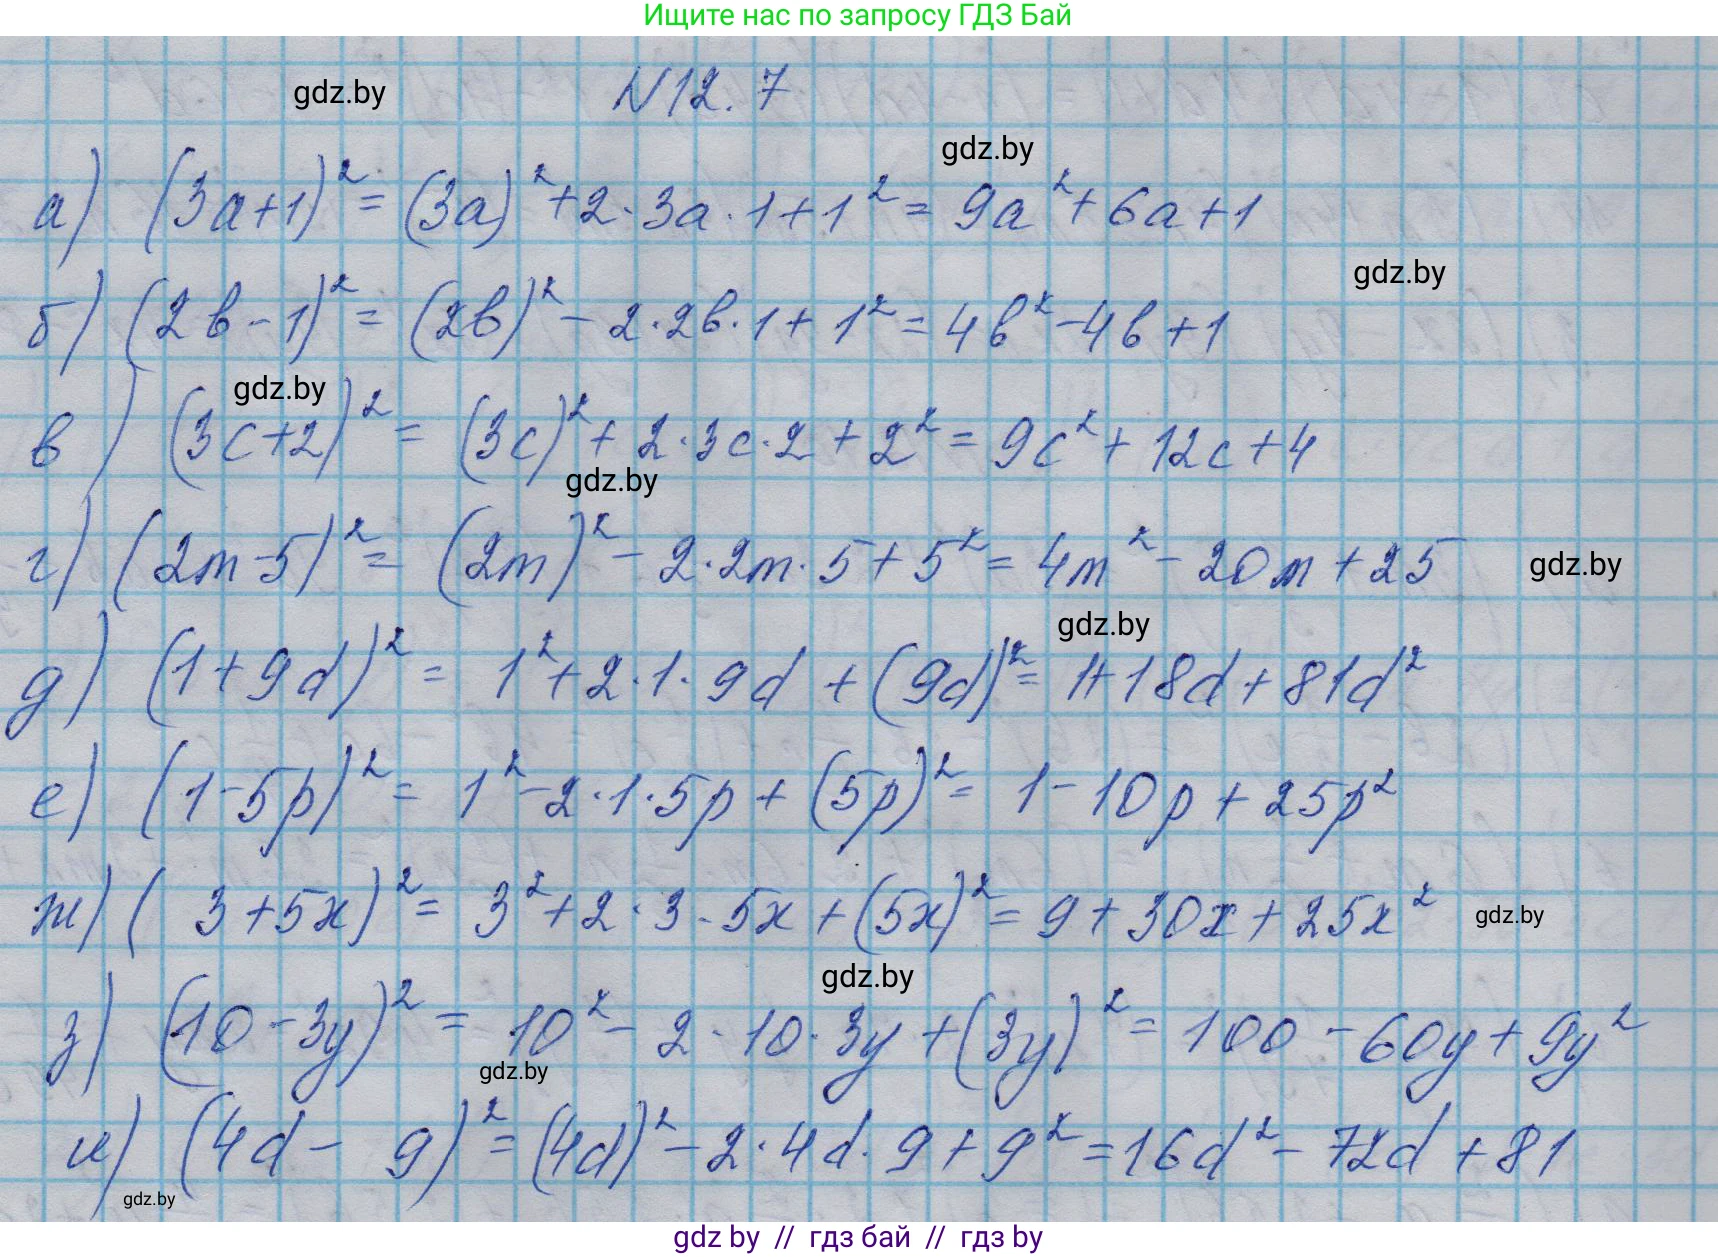 Ищите нас по запросу ГДЗ Бай
N12.7
gdz.by
gdz.by
а) (3a+1)² = (3a)² + 2·3a·1 + 1² = 9a² + 6a + 1
gdz.by
б) (2b-1)² = (2b)² - 2·2b·1 + 1² = 4b² - 4b + 1
gdz.by
в) (3c+2)² = (3c)² + 2·3c·2 + 2² = 9c² + 12c + 4
gdz.by
г) (2m-5)² = (2m)² - 2·2m·5 + 5² = 4m² - 20m + 25
gdz.by
gdz.by
д) (1+9d)² = 1² + 2·1·9d + (9d)² = 1+18d + 81d²
е) (1-5p)² = 1² - 2·1·5p + (5p)² = 1 - 10p + 25p²
ж) (3+5x)² = 3² + 2·3·5x + (5x)² = 9 + 30x + 25x²
gdz.by
gdz.by
з) (10-3y)² = 10² - 2·10·3y + (3y)² = 100 - 60y + 9y²
gdz.by
и) (4d - 9)² = (4d)² - 2·4d·9 + 9² = 16d² - 72d + 81
gdz.by
gdz by // гдз бай // gdz by